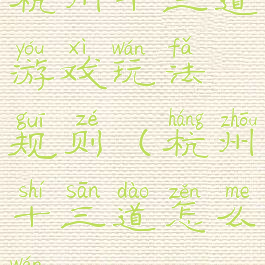 杭州十三道
yóu xì wán fǎ
游戏玩法
guī zé háng zhōu
规则（杭州
shí sān dào zěn me
十三道怎么
wán